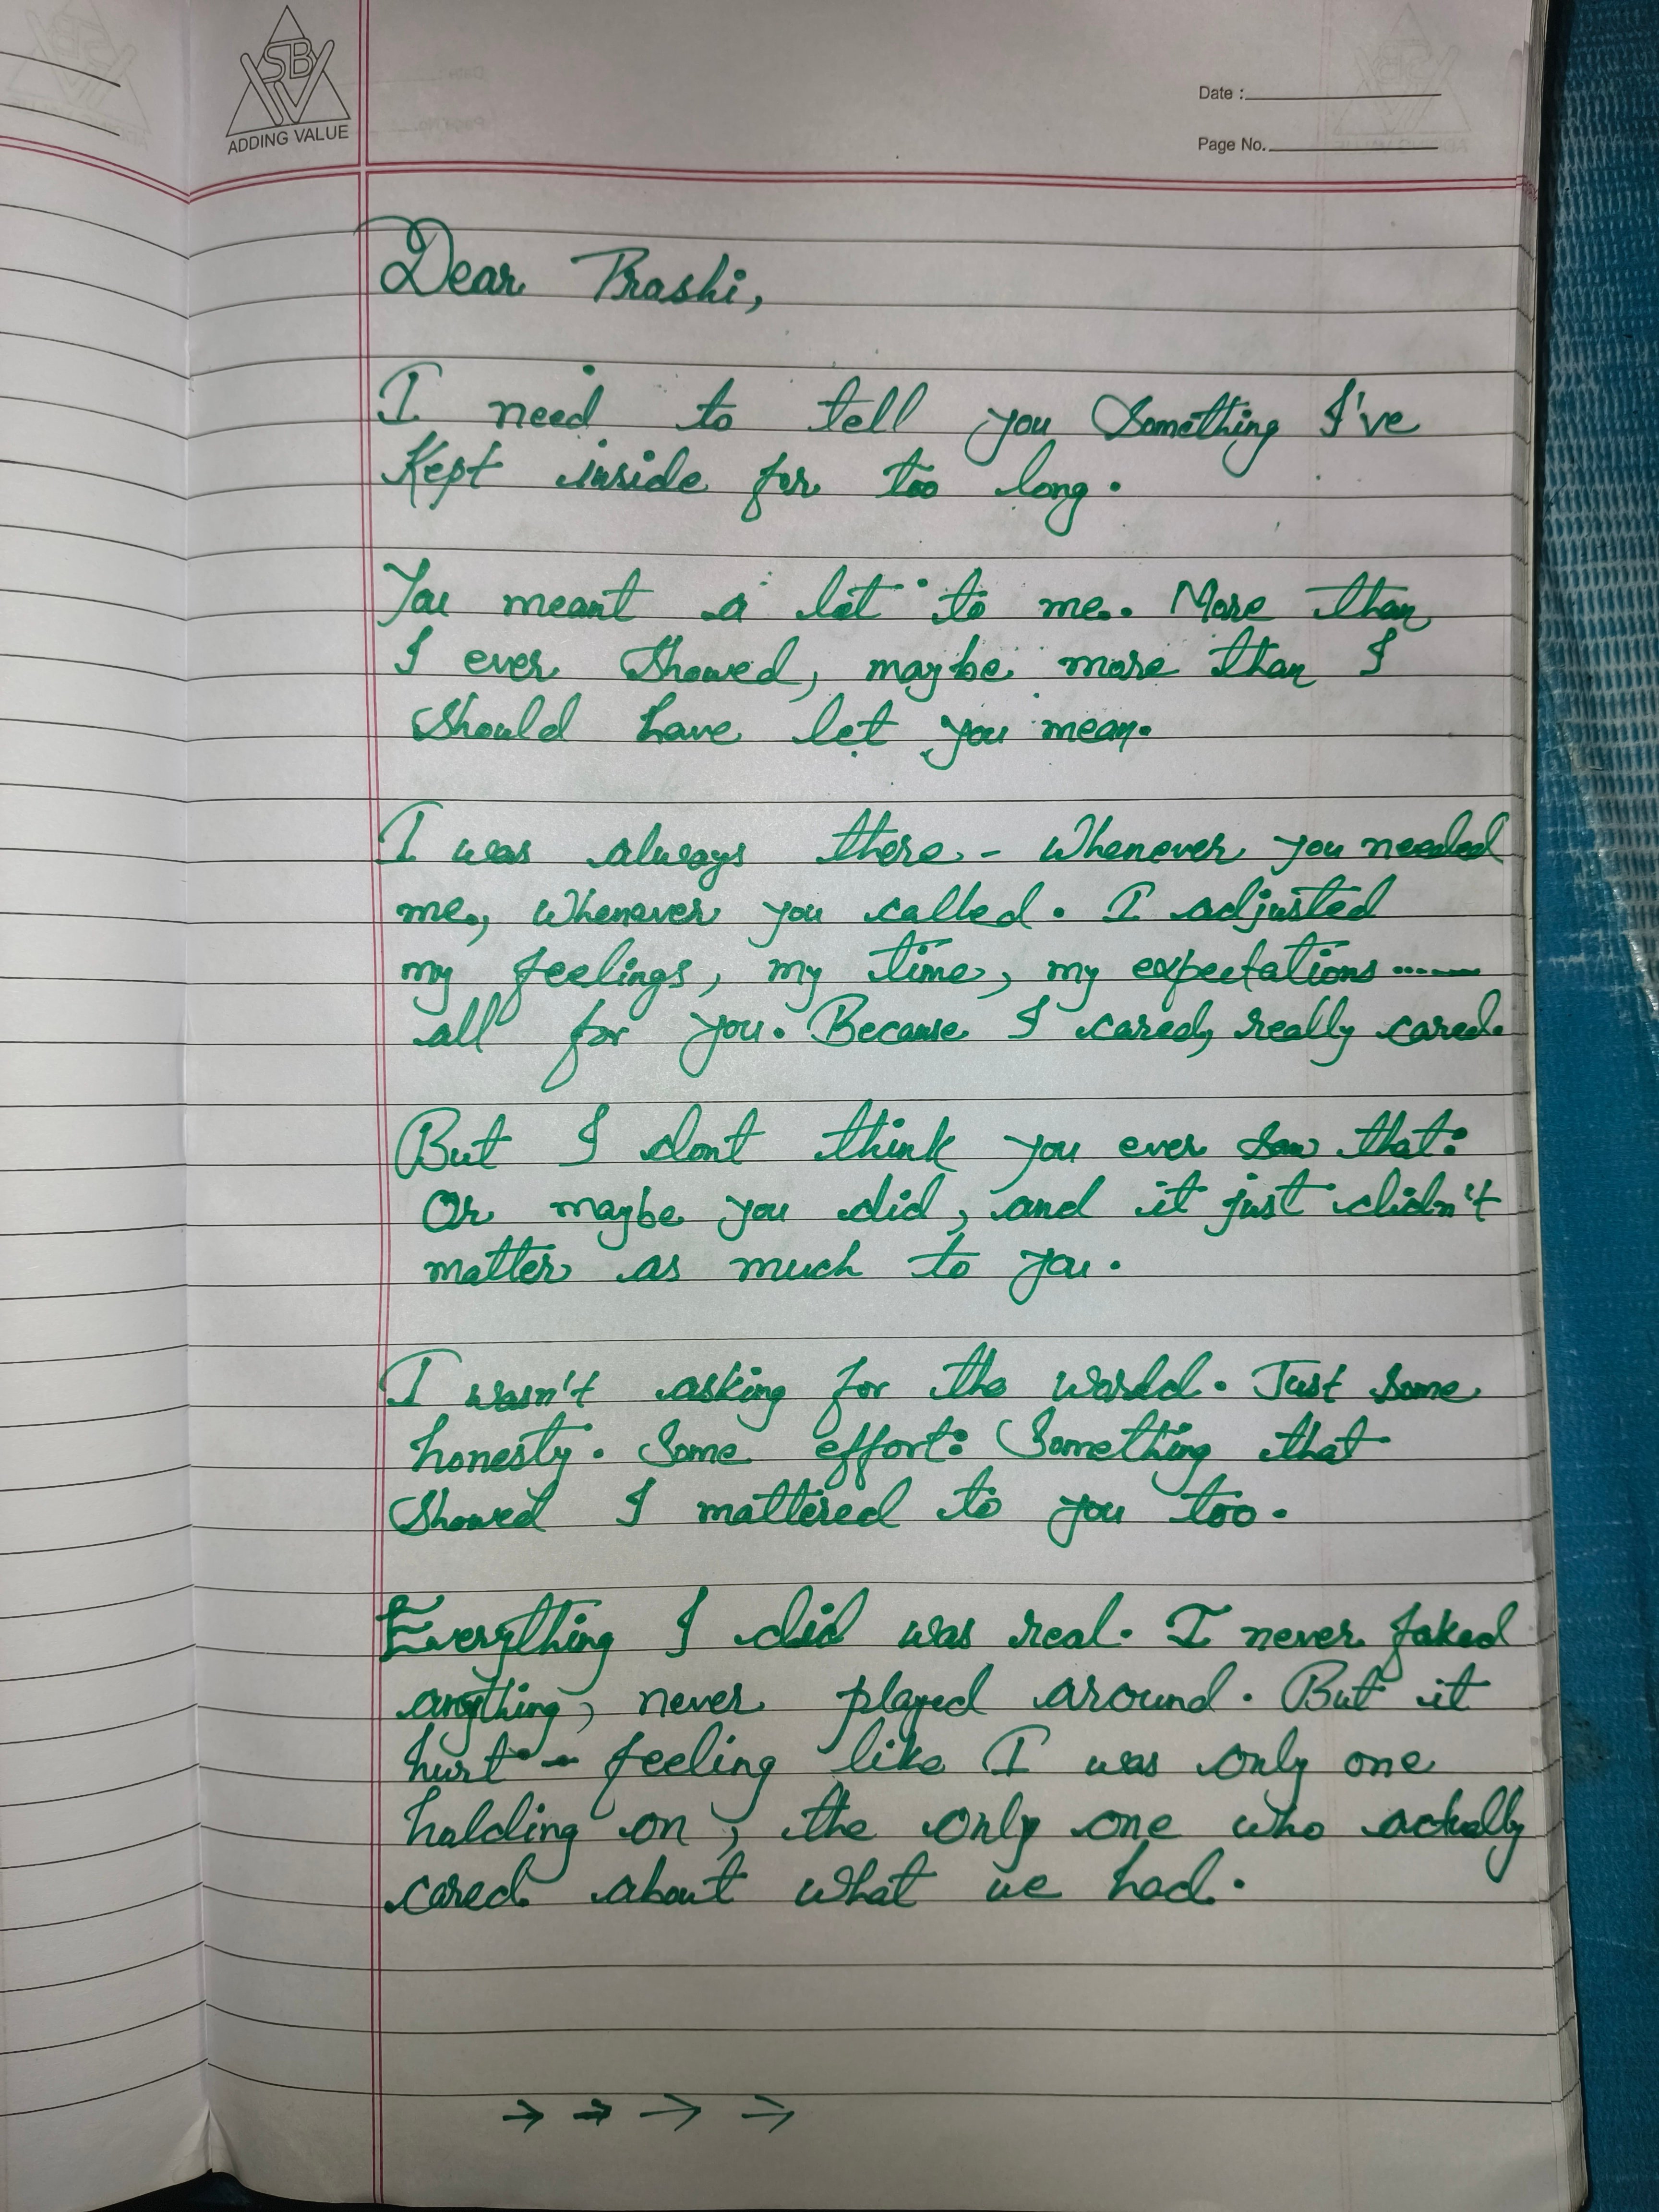 SBV
ADDING VALUE
Date :
Page No.
Dear Prashi,
I need to tell you Something I've
Kept inside for too long.
You meant a lot to me. More than
I ever Showed, maybe more than I
Should have let you mean.
I was always there - Whenever you needed
me, Whenever you called. I adjusted
my feelings, my time, my expectations......
all for you. Because I cared, really cared.
But I dont think you ever saw that.
Or maybe you did, and it just didn't
matter as much to you.
I wasn't asking for the world. Just some
honesty. Some effort. Something that
Showed I mattered to you too.
Everything I did was real. I never faked
anything, never played around. But it
hurt - feeling like I was only one
holding on, the only one who actually
cared about what we had.
→ → → →